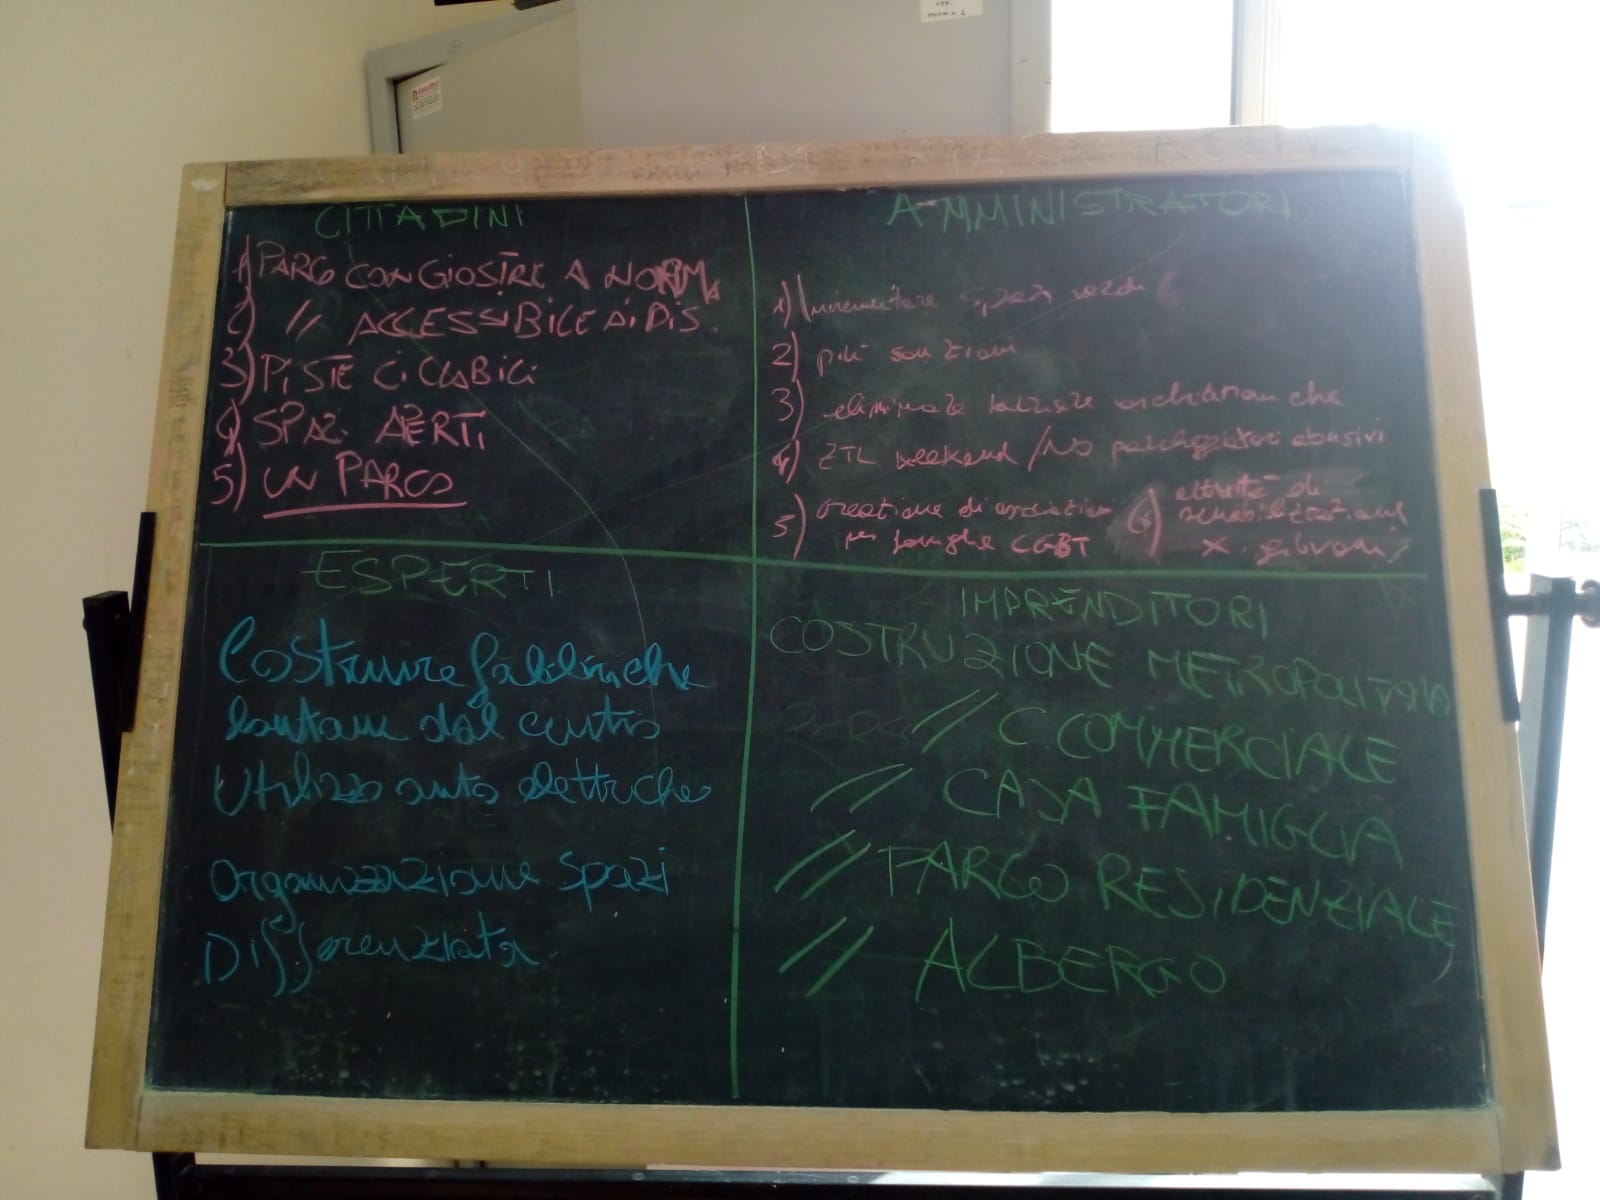 CITTADINI
1) PARCO CON GIOSTRE A NORMA
2) // ACCESSIBILE AI DIS.
3) PISTE CICLABILI
4) SPAZI APERTI
5) UN PARCO
AMMINISTRATORI
1) Incrementare spazi verdi
2) più sanzioni
3) eliminare barriere architettoniche
4) ZTL weekend / No parcheggiatori abusivi
5) creazione di associazioni
per famiglie LGBT
6) attività di
sensibilizzazione
x giovani
ESPERTI
Costruire fabbriche
lontane dal centro
Utilizzo auto elettriche
Organizzazione spazi
Differenziata
IMPRENDITORI
COSTRUZIONE METROPOLITANA
// C COMMERCIALE
// CASA FAMIGLIA
// PARCO RESIDENZIALE
// ALBERGO